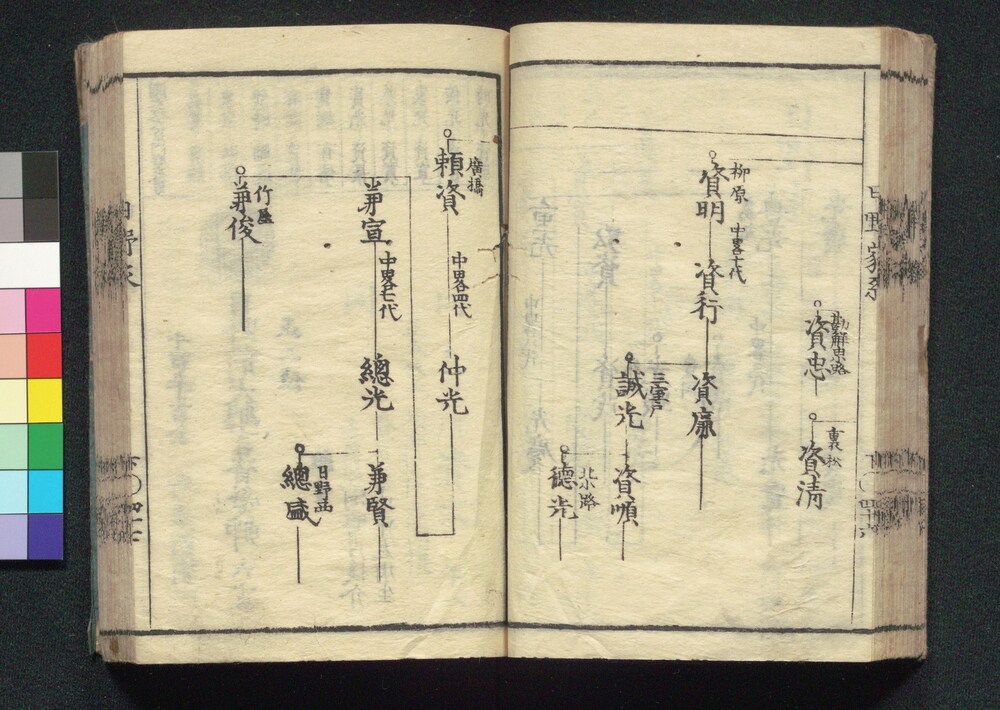 日野家系
勘解由路
資忠
裏松
資清
柳原
資明
中畧十代
資行
資廉
三室戸
誠光
資順
北小路
德光
廣橋
頼資
中畧四代
仲光
兼宣
中畧七代
總光
兼賢
日野西
總盛
竹屋
兼俊